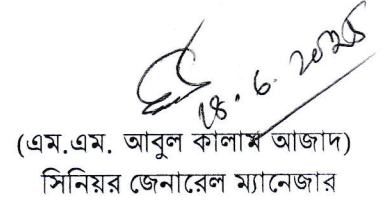 18.6.2025
(এম.এম. আবুল কালাম আজাদ)
সিনিয়র জেনারেল ম্যানেজার